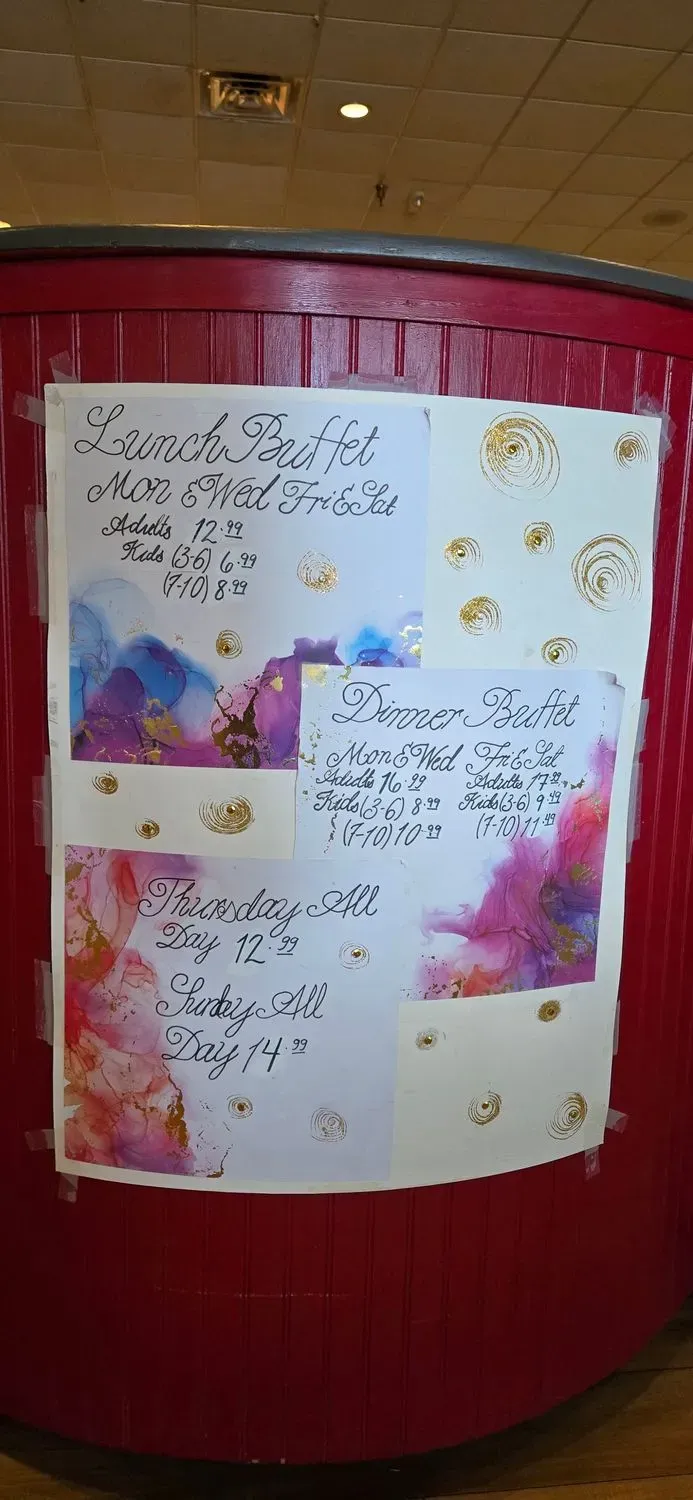 Lunch Buffet
Mon & Wed Fri & Sat
Adults 12.99
Kids (3-6) 6.99
(7-10) 8.99
Dinner Buffet
Mon & Wed
Adults 16.99
Kids (3-6) 8.99
(7-10) 10.99
Fri & Sat
Adults 17.99
Kids (3-6) 9.49
(7-10) 11.49
Thursday All
Day 12.99
Sunday All
Day 14.99